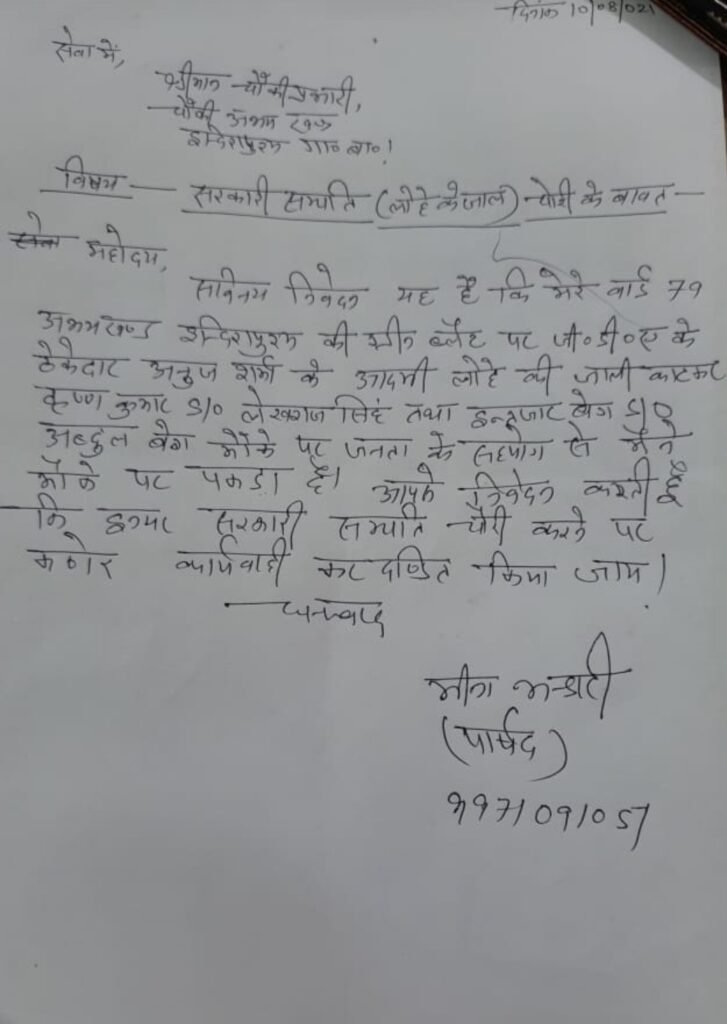 दिनांक 10/08/021
सेवा में,
श्रीमान चौकी प्रभारी,
चौकी अभय खण्ड
इन्दिरापुरम गा० बा०!
विषय — सरकारी सम्पति (लोहे के जाल) चोरी के बावत —
महोदय,
सविनय निवेदन यह है कि मेरे वार्ड 79
अभयखण्ड इन्दिरापुरम की ग्रीन बैल्ट पर जी०डी०ए के
ठेकेदार अनुज शर्मा के आदमी लोहे की जाली काटकर
कृष्ण कुमार S/० लेखराज सिंह तथा बेग S/०
अब्दुल बेग मौके पर जनता के सहयोग से मैने
मौके पर पकडा है। आपसे निवेदन करती हूँ
कि इनपर सरकारी सम्पति चोरी करने पर
कठोर कार्यवाही कर दण्डित किया जाय।
— धन्यवाद
मीना भन्डारी
(पार्षद)
9971091057